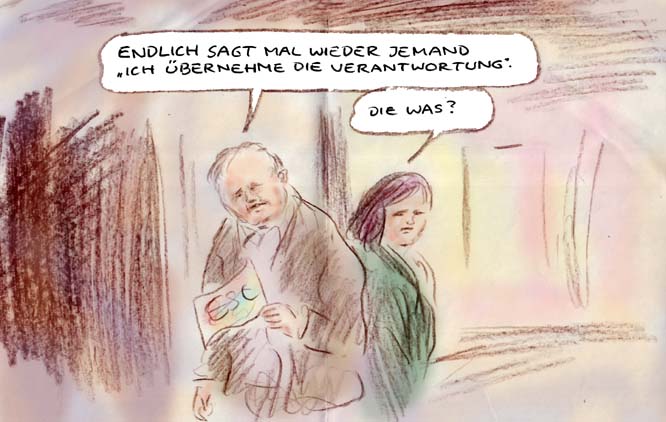 ENDLICH SAGT MAL WIEDER JEMAND
„ICH ÜBERNEHME DIE VERANTWORTUNG“.
DIE WAS?
ESC